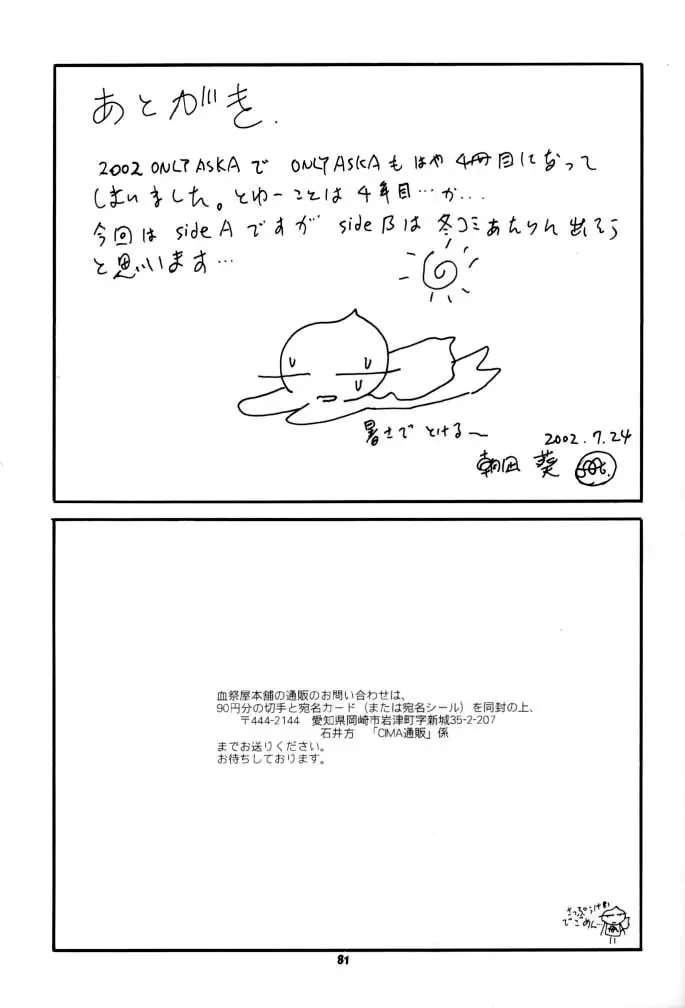 あとがき.
2002 ONLY ASKAで ONLY ASKAもはや4冊目になって
しまいました。とゆーことは4年目…か…
今回は side Aですが side Bは冬コミあたりに出そう
と思います…
暑さで とける〜
2002.7.24
朝凪 葵
血祭屋本舗の通販のお問い合わせは、
90円分の切手と宛名カード（または宛名シール）を同封の上、
〒444-2144　愛知県岡崎市岩津町字新城35-2-207
石井方　「CIMA通販」係
までお送りください。
お待ちしております。
さっぷうけい
でごめん…
81